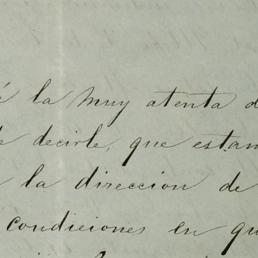 é la muy atenta d
de decirle, que estam
la direccion de
condiciones en qu